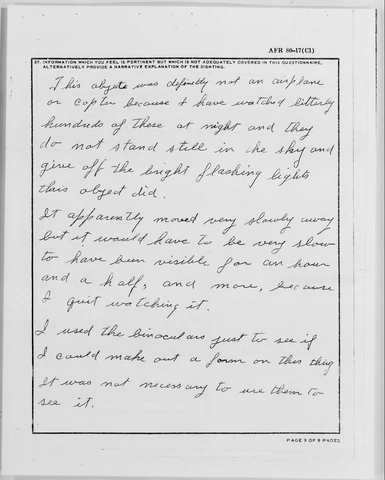 AFR 80-17(C1)
27. INFORMATION WHICH YOU FEEL IS PERTINENT BUT WHICH IS NOT ADEQUATELY COVERED IN THIS QUESTIONNAIRE,
ALTERNATIVELY PROVIDE A NARRATIVE EXPLANATION OF THE SIGHTING.
This objete was definetly not an airplane
or copter because I have watched litterly
hundreds of these at night and they
do not stand still in the sky and
give off the bright flashing lights
this object did.
It apparently moved very slowly away
but it would have to be very slow
to have been visible for an hour
and a half, and more, because
I quit watching it.
I used the binoculars just to see if
I could make out a form on this thing
It was not necessary to use them to
see it.
PAGE 9 OF 9 PAGES